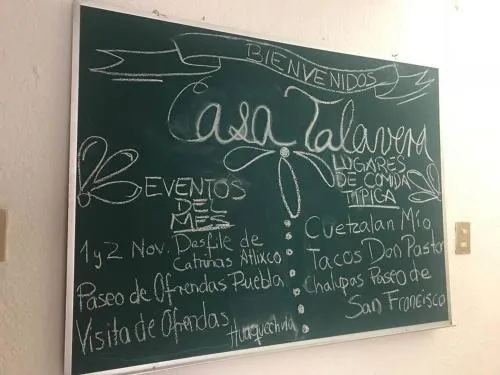 BIENVENIDOS
Casa Talavera
EVENTOS
DEL
MES
1 y 2 Nov. Desfile de
Catrinas Atlixco
Paseo de Ofrendas Puebla
Visita de Ofrendas
Huaquechula
LUGARES
DE COMIDA
TIPICA
Cuetzalan Mío
Tacos Don Pastor
Chalupas Paseo de
San Francisco